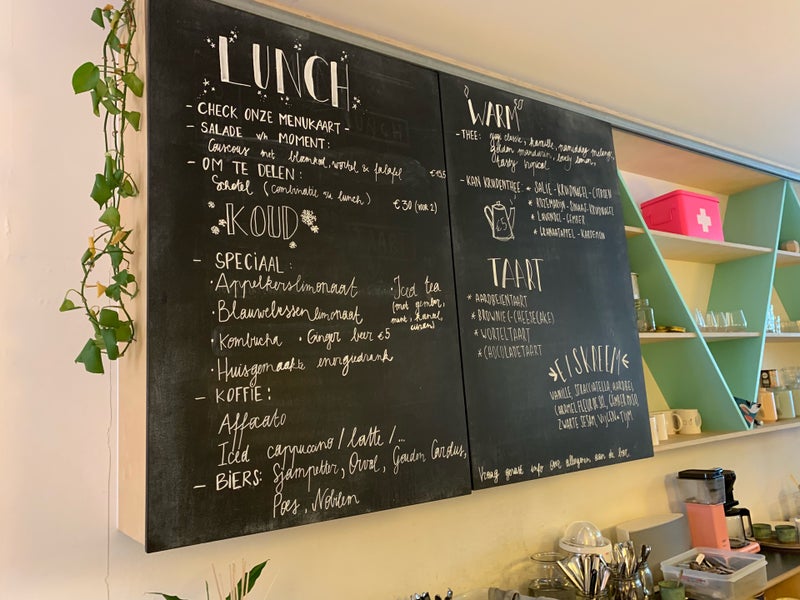 LUNCH
- CHECK ONZE MENUKAART -
- SALADE v/h MOMENT:
Couscous met bloemkool, wortel & falafel
- OM TE DELEN:
Schotel (combinatie v/d lunch)
€30 (voor 2)
KOUD
- SPECIAAL:
· Appelkerslimonaat
· Blauwebessenlimonaat
· Kombucha · Ginger beer €5
· Huisgemaakte energiedrank
· Iced tea
(met gember,
munt, kaneel,
- KOFFIE:
Affocato
Iced cappuccino / latte /...
- BIERS: Sjampetter, Orval, Gouden Carolus,
Poes, Nobilem
WARM
- THEE: classic, kamille, namiddag melange,
golden mandarin, lovely lemon,
tasty tropical
- KAN KRUIDENTHEE
* SALIE - KRUIDNAGEL - CITROEN
* ROZEMARIJN - SINAAS - KRUIDNAGEL
* LAVENDEL - GEMBER
* GRANAATAPPEL - KARDEMON
TAART
* AARDBEIENTAART
* BROWNIE (-CHEESECAKE)
* WORTELTAART
* CHOCOLADETAART
EISKREEM
VANILLE, STRACCIATELLA, AARDBEI,
CARAMEL FLEUR DE SEL, GEMBER MISO,
ZWARTE SESAM, VIJGEN + TIJM
Vraag gerust info over allergenen aan de bar.